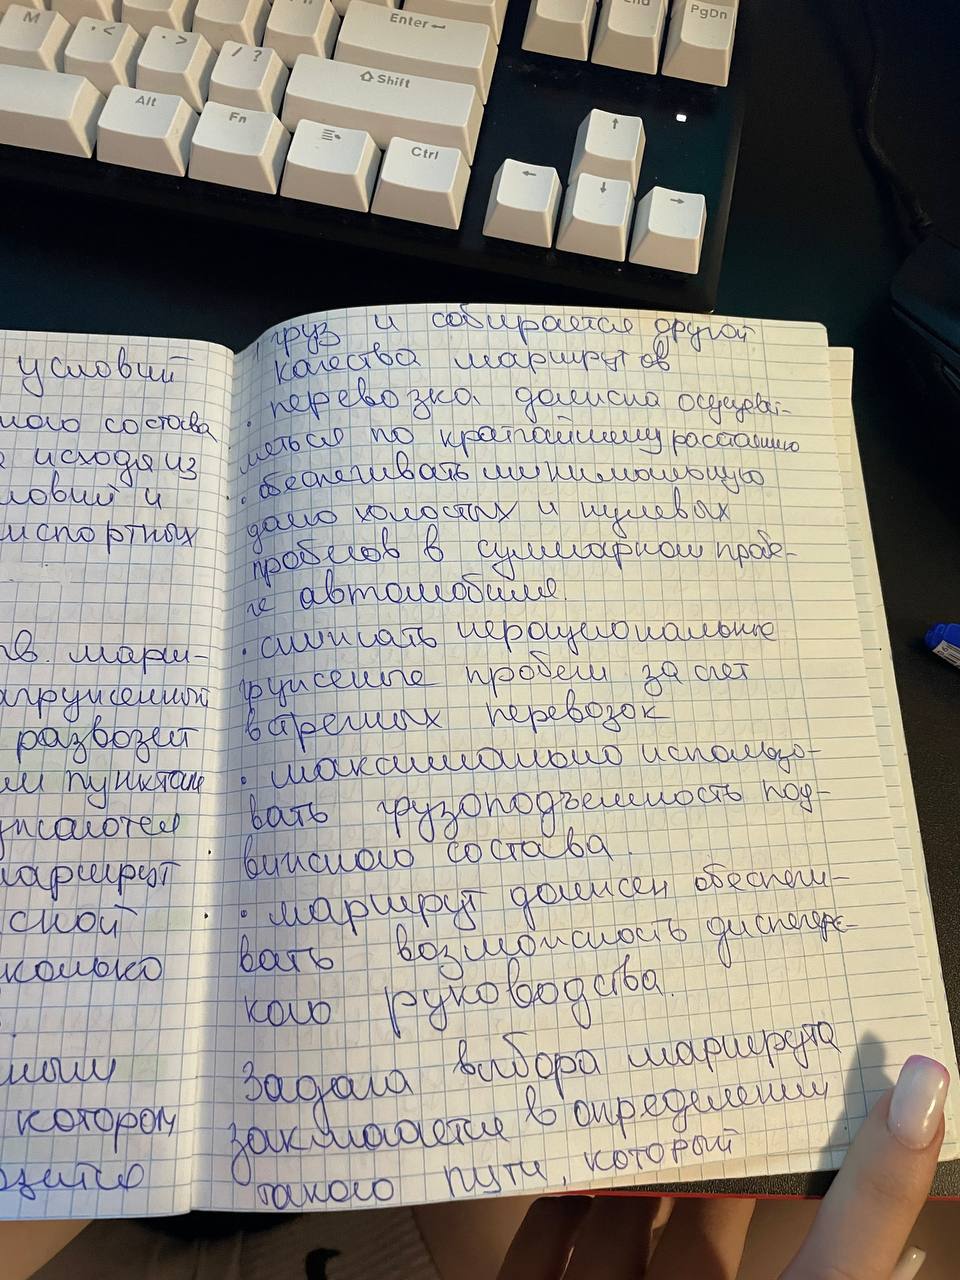 M
Enter
PgDn
Alt
Fn
Shift
Ctrl
условий
ного состава
исходя из
ловий и
нспортных
марш-
агруженный
развозит
пунктам
маршрут
сной
колько
котором
груз и собирается другой
качества маршрутов
перевозка должна осуществ-
ляться по кратчайшему расстоянию
• обеспечивать минимальную
долю холостых и нулевых
пробегов в суммарном пробе-
ге автомобиля.
• снижать нерациональные
груженые пробеги за счет
встречных перевозок
• максимально использо-
вать грузоподъемность под-
вижного состава.
• маршрут должен обеспечи-
вать возможность диспетчерс-
кого руководства.
Задача выбора маршрута
заключается в определении
такого пути, который